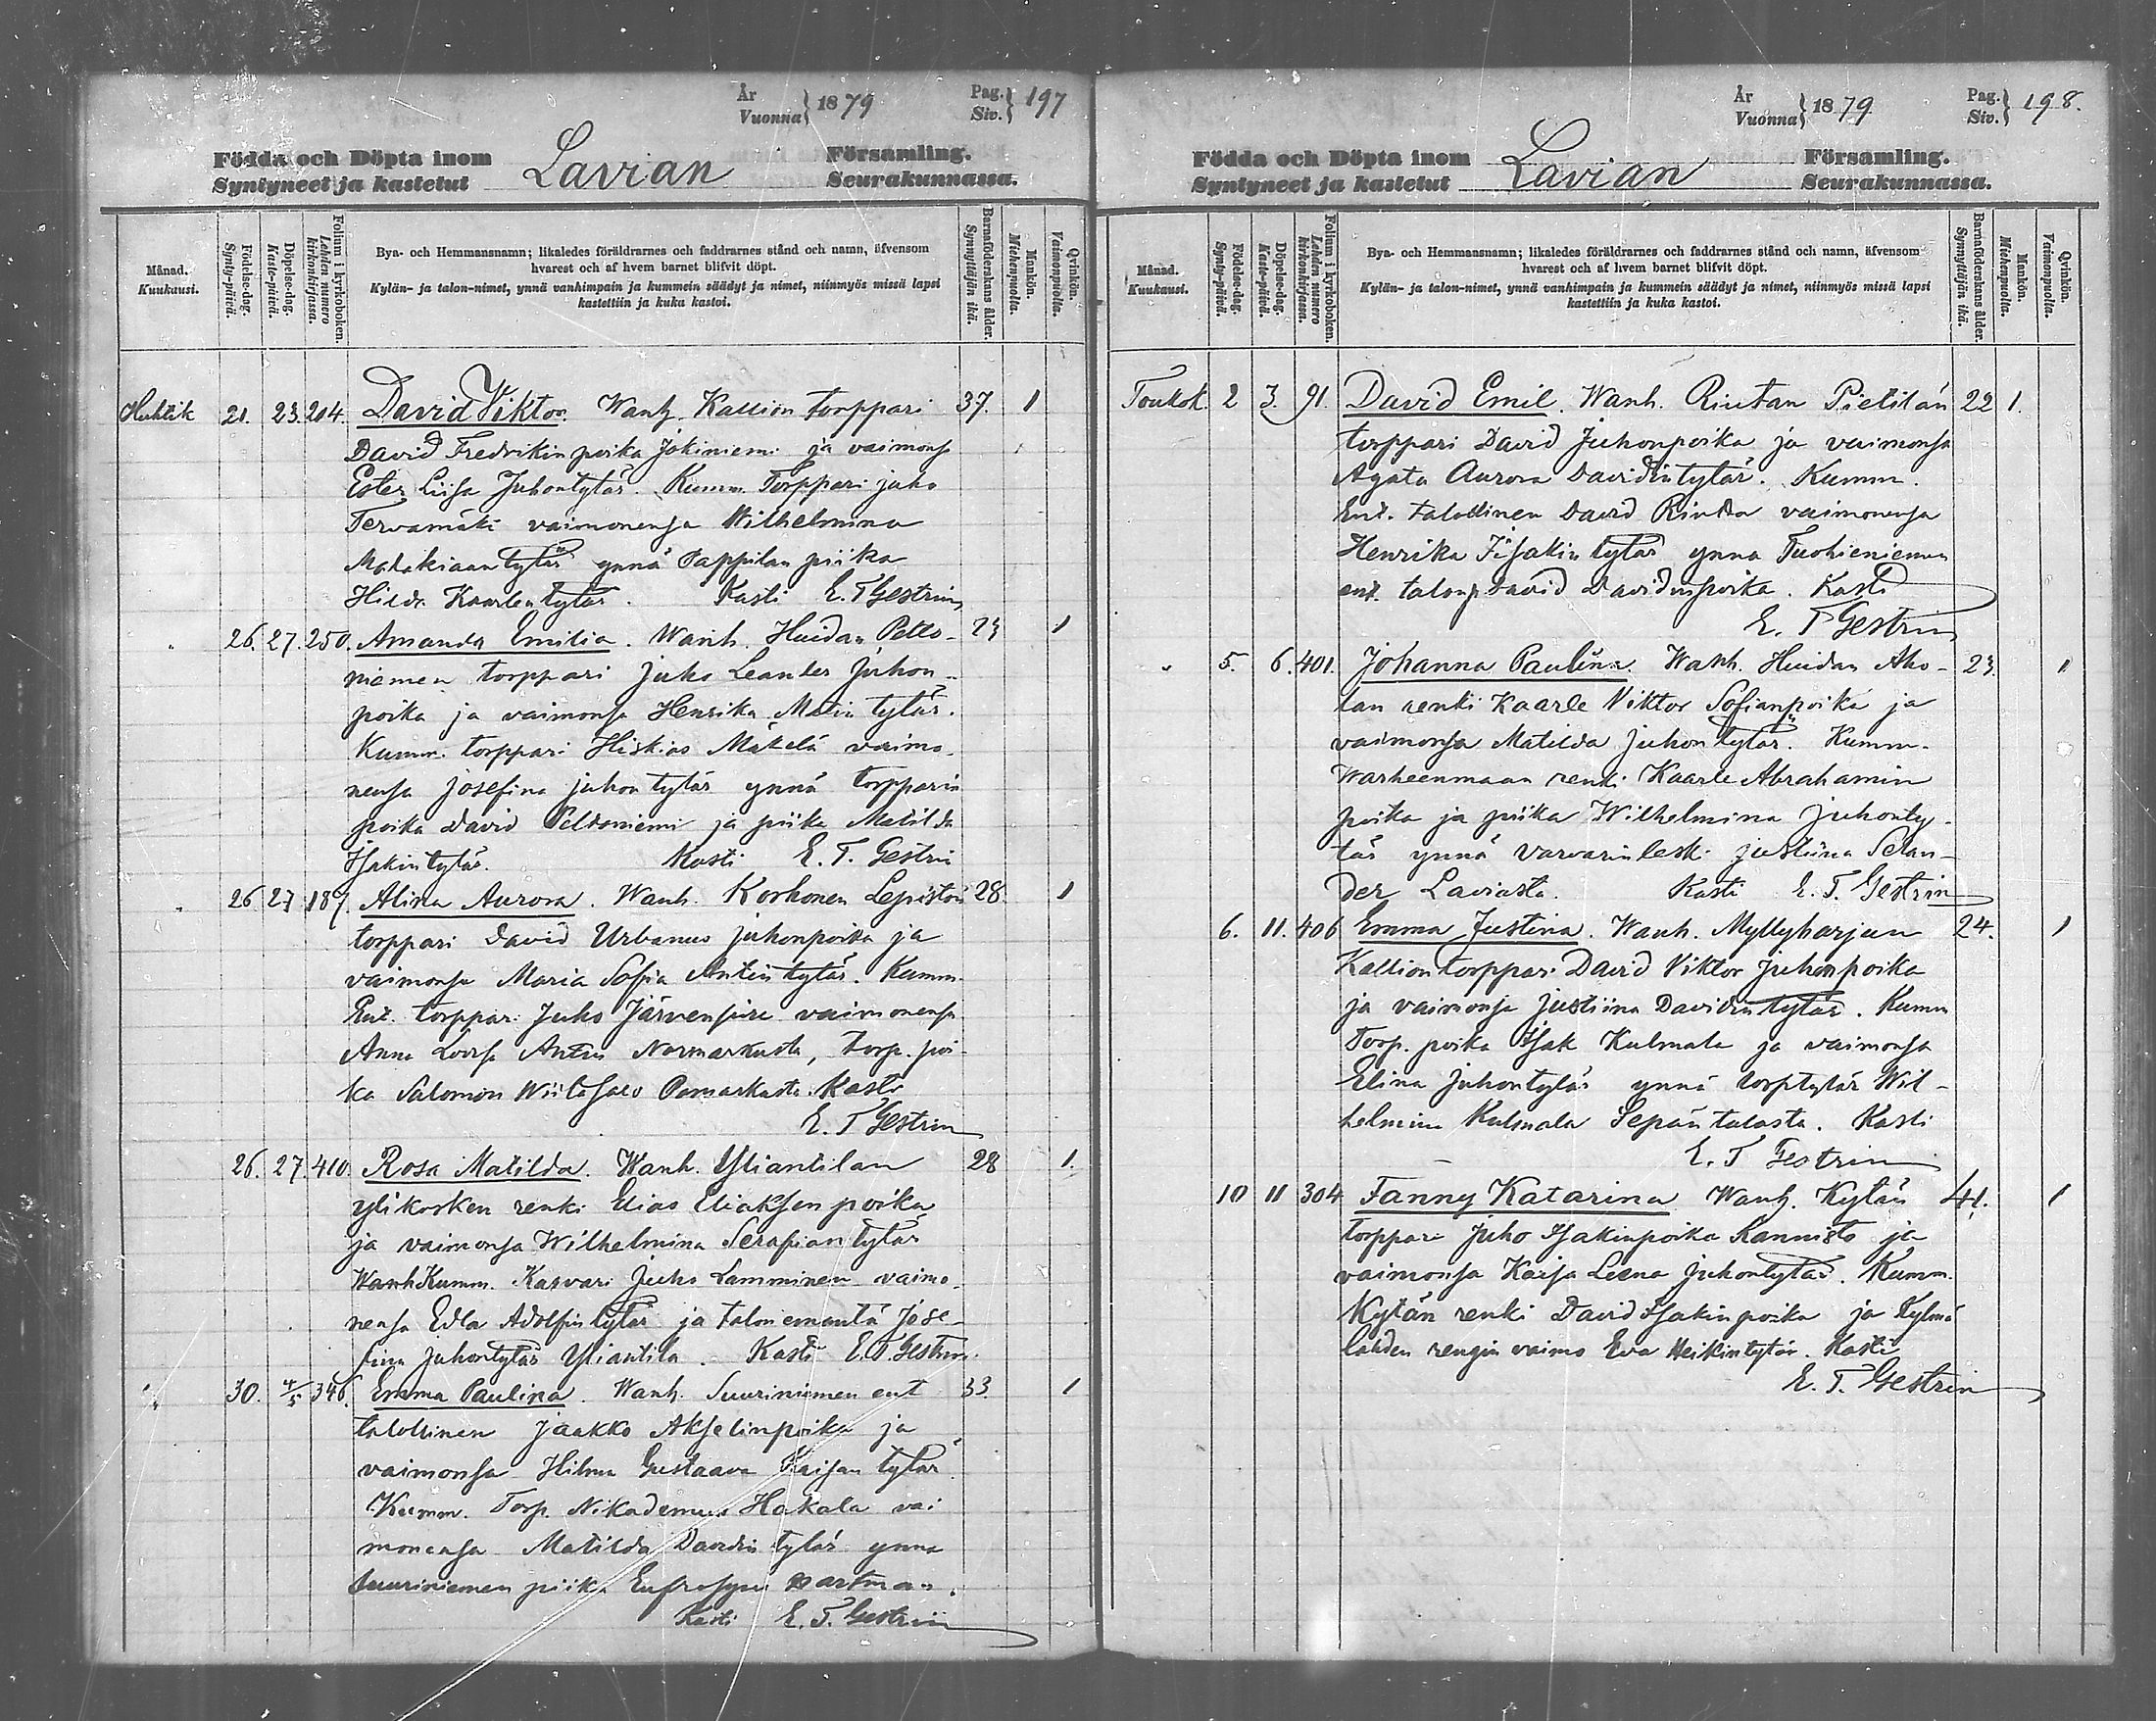 År
Vuonna } 1879
Pag.
Siv. } 197
Födda och Döpta inom
Syntyneet ja kastetut
Lavian
Församling.
Seurakunnassa.
Månad.
Kuukausi.
Födelse-dag.
Synty-päivä.
Döpelse-dag.
Kaste-päivä.
Folium i kyrkoboken.
Lehden numero
kirkonkirjassa.
Bya- och Hemmansnamn; likaledes föräldrarnes och faddrarnes stånd och namn, äfvensom
hvarest och af hvem barnet blifvit döpt.
Kylän- ja talon-nimet, ynnä vanhimpain ja kummein säädyt ja nimet, niinmyös missä lapsi
kastettiin ja kuka kastoi.
Barnaföderskans ålder.
Synnyttäjän ikä.
Mankön.
Miehenpuolta.
Qvinkön.
Vaimonpuolta.
Huhtik 21. 23. 204. David Viktor. Wanh. Kallion torppari 37. 1
David Fredrikin poika Jokiniemi ja vaimonsa
Ester Liisa Juhontytär. Kumm. Torppari Juho
Tervamäki vaimonensa Wilhelmina
Malakiaantytär ynnä Pappilan piika
Hilda Kaarlentytär. Kasti E. T Gestrin
26. 27. 250. Amanda Emilia. Wanh. Huidan Pelto- 23 1
niemen torppari Juho Leander Juhon-
poika ja vaimonsa Henrika Matin tytär.
Kumm. torppari Hiskias Mäkelä vaimo-
nensa Josefina Juhontytär ynnä torpparin
poika David Peltoniemi ja piika Matilda
Isakintytär. Kasti E. T. Gestrin
26. 27 187. Alina Aurora. Wanh. Korhonen Lepistön 28 1
torppari David Urbanus Juhonpoika ja
vaimonsa Maria Sofia Antintytär. Kumm.
Ent. torppari Juho Järvensivu vaimonensa
Anna Lovisa Antin Normarkusta, torp. poi-
ka Salomon Wiitasalo Pomarkusta. Kasti
E. T Gestrin
26. 27. 410. Rosa Matilda. Wanh. Yliantilan 28 1.
ylikosken renki Elias Eliaksen poika
ja vaimonsa Wilhelmina Serafiantytär
Wanh Kumm. Kasvari Juho Lamminen vaimo-
nensa Edla Adolfintytär ja taloniemäntä Jose-
fina Juhontytär Yliantila. Kasti E. T. Gestrin.
30. 4/5 346. Emma Paulina. Wanh. Suuriniemen ent 33. 1
talollinen Jaakko Akselinpoika ja
vaimonsa Hilma Gustaava Kaisan tytär
Kumm. Torp. Nikodemus Hakala vai
monensa Matilda Davidin tytär ynnä
Suuriniemen piika Eufrosyne
Kasti E. T. Gestrin
År
Vuonna } 1879.
Pag.
Siv. } 198.
Födda och Döpta inom
Syntyneet ja kastetut
Lavian
Församling.
Seurakunnassa.
Månad.
Kuukausi.
Födelse-dag.
Synty-päivä.
Döpelse-dag.
Kaste-päivä.
Folium i kyrkoboken.
Lehden numero
kirkonkirjassa.
Bya- och Hemmansnamn; likaledes föräldrarnes och faddrarnes stånd och namn, äfvensom
hvarest och af hvem barnet blifvit döpt.
Kylän- ja talon-nimet, ynnä vanhimpain ja kummein säädyt ja nimet, niinmyös missä lapsi
kastettiin ja kuka kastoi.
Barnaföderskans ålder.
Synnyttäjän ikä.
Mankön.
Miehenpuolta.
Qvinkön.
Vaimonpuolta.
Toukok. 2 3. 91. David Emil. Wanh. Riutan Pietilän 22 1.
torppari David Juhonpoika ja vaimonsa
Agata Aurora Davidintytär. Kumm.
Ent. talollinen David Riutta vaimonensa
Henrika Iisakintytär ynnä Tuohieniemen
ent. talonp David Davidinpoika. Kasti
E. T Gestrin
5. 6. 401. Johanna Paulina. Wanh. Huidan Aho- 23. 1
lan renki Kaarle Viktor Sofianpoika ja
vaimonsa Matilda Juhontytär. Kumm.
Warheenmaan renki Kaarle Abrahamin
poika ja piika Wilhelmina Juhonty-
tär ynnä varvarinleski Justiina Selan-
der Laviasta. Kasti E. T. Gestrin
6. 11. 406 Emma Justina. Wanh. Myllyharjun 24. 1
Kallion torppari David Viktor Juhonpoika
ja vaimonsa Justiina Davidintytär. Kumm
Torp. poika Isak Kulmala ja vaimonsa
Elina Juhontytär ynnä torptytär Wil-
helmina Kulmala Sepäntalosta. Kasti
E. T Gestrin
10 11 304 Fanny Katarina Wanh. Kytän 41. 1
torppari Juho Isakinpoika Kannisto ja
vaimonsa Kaisa Leena Juhontytär. Kumm.
Kytän renki David Isakinpoika ja Kylmä
lahden rengin vaimo Eva Heikintytär. Kasti
E. T. Gestrin